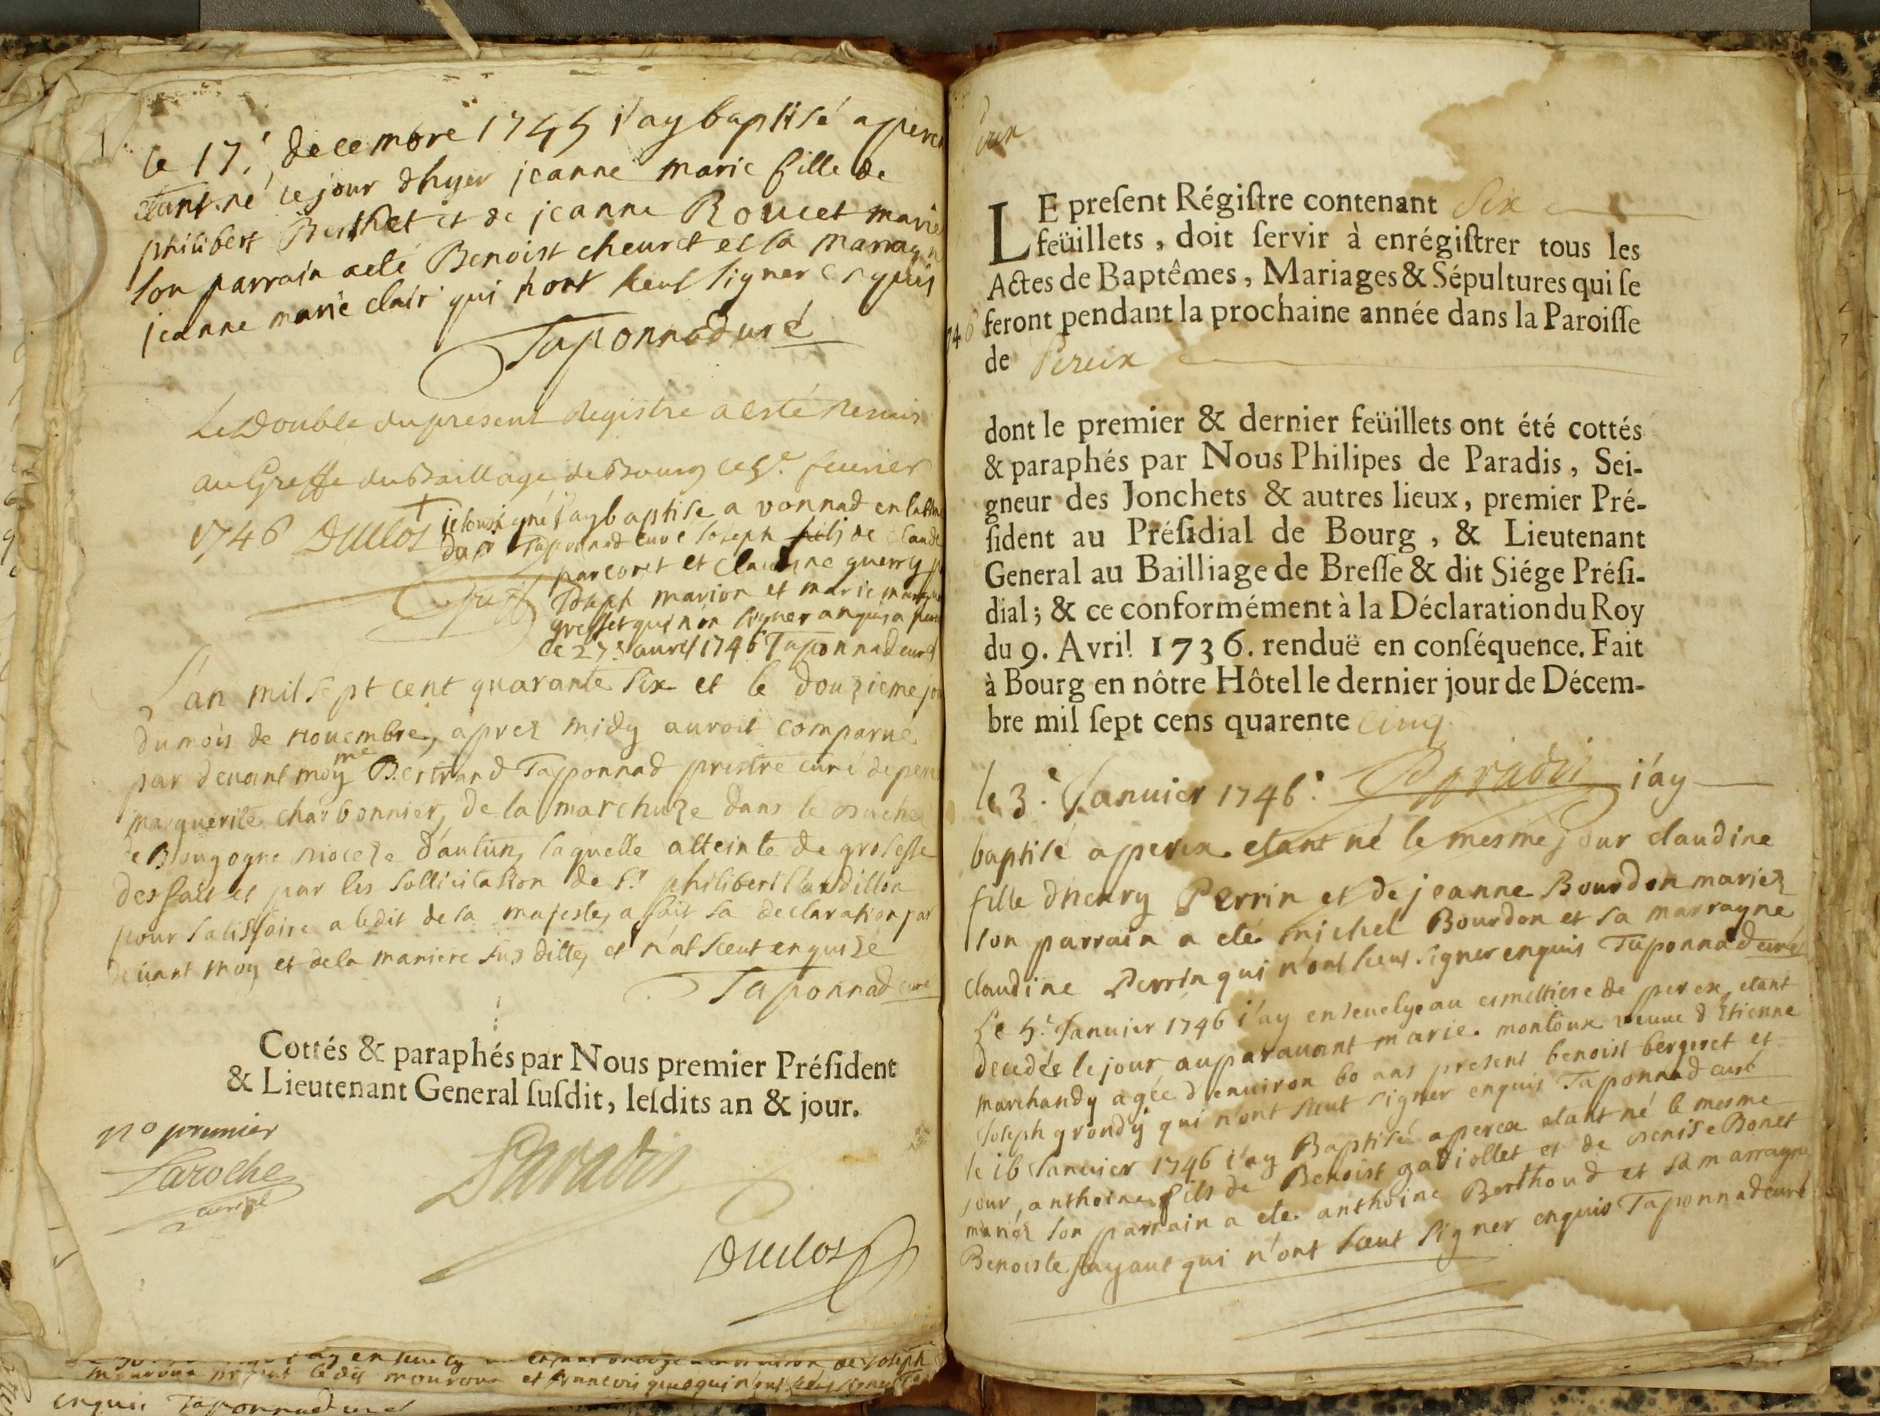 le 17.e decembre 1745 j'ay baptisé a perex
etant né ce jour dhyer jeanne marie fille de
philibert Berthet et de jeanne Roucet mariez
son parrain a eté Benoist cheuret et sa marrayne
jeanne marie clair qui nont sceut signer enquis
Taponnad curé
Le Double du present Registre a esté Remis
au Greffe du Baillage de Bourg ce 5e. feurier
1746 Duclos
je sousigné j'ay baptise a vonnad en
Taponnad curé joseph fils de claude
parcoret et claudine guerry
joseph marion et marie
qui n'on signer anquis a
ce 27e avril 1746 Taponnad curé
L'an mil sept cent quarante six et le douzieme jour
du mois de nouembre, aprez midy auroit comparue
par deuant moy Me Bertrand Taponnad prestre curé de perex
marguerite charbonnier, de la marchuze dans le duche
de Bourgogne dioceze d'autun, laquelle atteinte de grosesse
des fait et par les sollicitation de Sr philibert
pour satisfaire a ledit de sa majesté, a fait sa declaration par
deuant moy et de la maniere sus ditte, et n'at sceut enquize
Taponnad curé
Cottés & paraphés par Nous premier Président
& Lieutenant General susdit, lesdits an & jour.
no premier
Laroche
Paradis
Duclos
enquis Taponnad curé
LE present Régistre contenant Six
feüillets, doit servir à enrégistrer tous les
Actes de Baptêmes, Mariages & Sépultures qui se
feront pendant la prochaine année dans la Paroisse
de Pereix
dont le premier & dernier feüillets ont été cottés
& paraphés par Nous Philipes de Paradis, Sei-
gneur des Jonchets & autres lieux, premier Pré-
sident au Présidial de Bourg, & Lieutenant
General au Bailliage de Bresse & dit Siége Prési-
dial; & ce conformément à la Déclaration du Roy
du 9. Avril 1736. renduë en conséquence. Fait
à Bourg en nôtre Hôtel le dernier jour de Décem-
bre mil sept cens quarente cinq.
Paradis
le 3.e Januier 1746. j'ay
baptisé a perex etant né le mesme jour claudine
fille d'henry Perrin et de jeanne Bourdon mariez
son parrain a eté michel Bourdon et sa marrayne
claudine Perrin qui n'ont sceut signer enquis Taponnad curé
Le 5.e Januier 1746 j'ay enseuelye au cimettiere de perex, etant
decedée le jour auparauant marie montoux veuue d'Etienne
marchandy agée d'enuiron 60 ans present benoist bergeret et
joseph grondy qui n'ont sceut signer enquis Taponnad curé
le 16 Januier 1746 j'ay Baptisé a perex etant né le mesme
jour, anthoine fils de Benoist gadiollet et de Denise Bonet
mariez son parrain a eté anthoine Berthoud et sa marrayne
Benoiste fayaut qui n'ont sceut signer enquis Taponnad curé